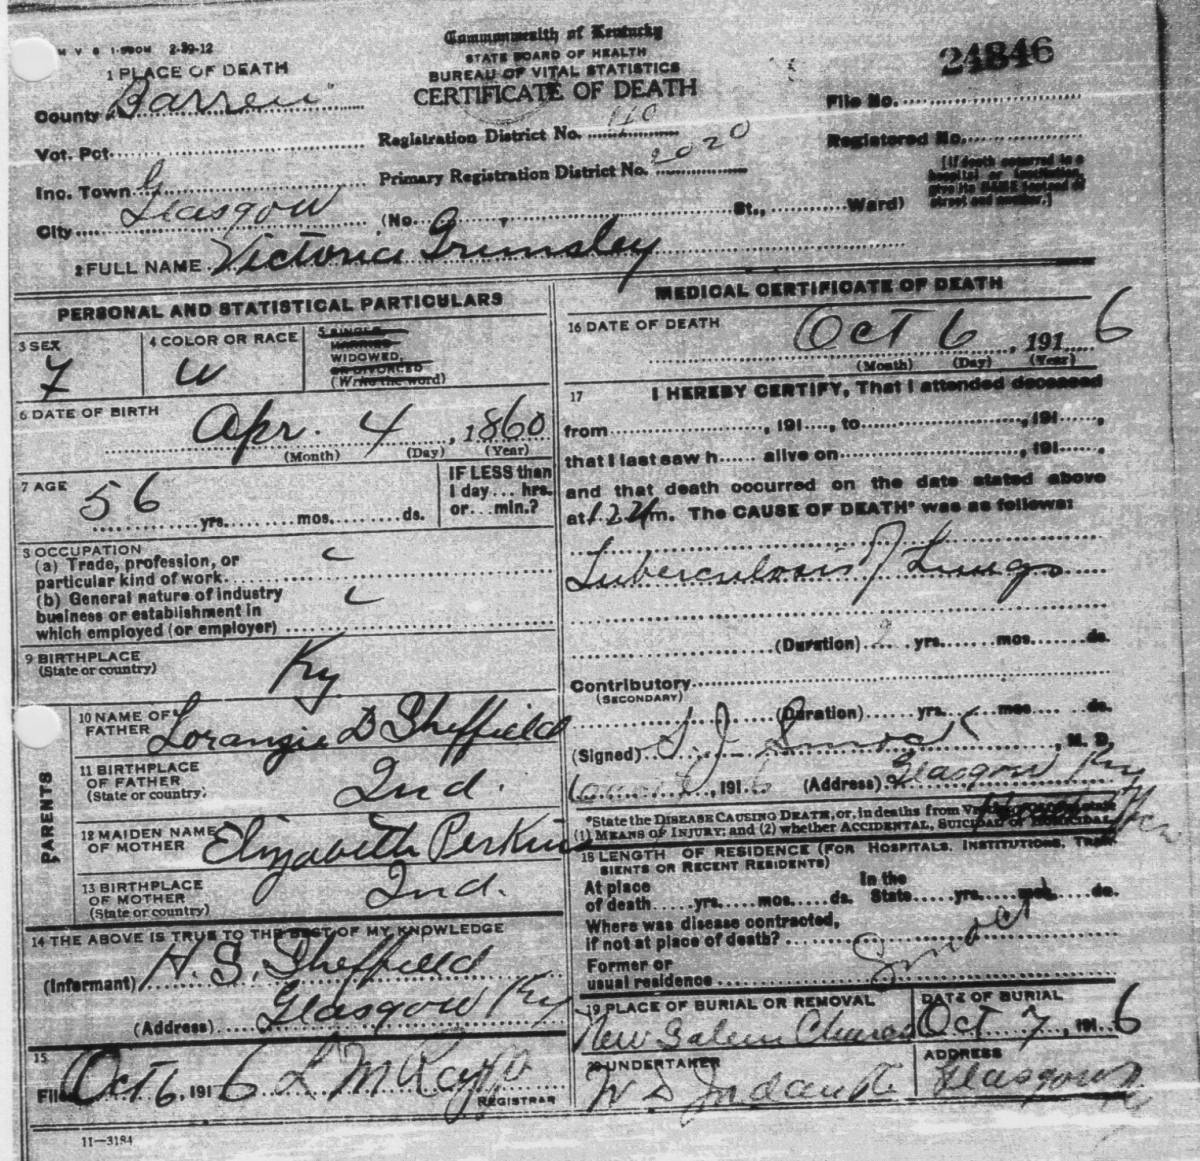 M V S 1-550M 2-29-12
Commonwealth of Kentucky
STATE BOARD OF HEALTH
BUREAU OF VITAL STATISTICS
CERTIFICATE OF DEATH
24846
1 PLACE OF DEATH
County Barren
Vot. Pct.
Inc. Town G
City Glasgow
Registration District No. 110
Primary Registration District No. 2020
File No.
Registered No.
[If death occurred in a
hospital or institution,
give its NAME instead of
street and number.]
(No. St., Ward)
2 FULL NAME Victoria Grimsley
PERSONAL AND STATISTICAL PARTICULARS
3 SEX
F
4 COLOR OR RACE
W
5 SINGLE
MARRIED
WIDOWED,
OR DIVORCED
(Write the word)
6 DATE OF BIRTH
Apr. 4, 1860
(Month) (Day) (Year)
7 AGE
56
yrs. mos. ds.
IF LESS than
1 day ... hrs.
or ... min.?
8 OCCUPATION
(a) Trade, profession, or
particular kind of work
(b) General nature of industry
business or establishment in
which employed (or employer)
9 BIRTHPLACE
(State or country)
Ky
PARENTS
10 NAME OF
FATHER
Loranzie D Sheffield
11 BIRTHPLACE
OF FATHER
(State or country)
Ind.
12 MAIDEN NAME
OF MOTHER
Elizabeth Perkins
13 BIRTHPLACE
OF MOTHER
(State or country)
Ind.
14 THE ABOVE IS TRUE TO THE BEST OF MY KNOWLEDGE
(Informant) H. S. Sheffield
(Address) Glasgow Ky
15
Filed Oct 6, 1916 L M
REGISTRAR
11-3184
MEDICAL CERTIFICATE OF DEATH
16 DATE OF DEATH
Oct 6, 1916
(Month) (Day) (Year)
17 I HEREBY CERTIFY, That I attended deceased
from , 191 , to , 191 ,
that I last saw h alive on , 191 ,
and that death occurred on the date stated above
at m. The CAUSE OF DEATH* was as follows:
Tuberculosis of Lungs
(Duration) 2 yrs. mos. ds.
Contributory
(SECONDARY)
(Duration) yrs. mos. ds.
(Signed) S. J. Smock, M. D.
, 1916 (Address) Glasgow Ky
*State the DISEASE CAUSING DEATH, or, in deaths from
(1) MEANS OF INJURY; and (2) whether ACCIDENTAL, SUICIDAL or HOMICIDAL.
18 LENGTH OF RESIDENCE (FOR HOSPITALS, INSTITUTIONS, TRAN-
SIENTS OR RECENT RESIDENTS)
At place
of death yrs. mos. ds.
In the
State yrs. mos. ds.
Where was disease contracted,
if not at place of death?
Former or
usual residence
Smock
19 PLACE OF BURIAL OR REMOVAL
New Salem Church
DATE OF BURIAL
Oct 7, 1916
20 UNDERTAKER
W D
ADDRESS
Glasgow